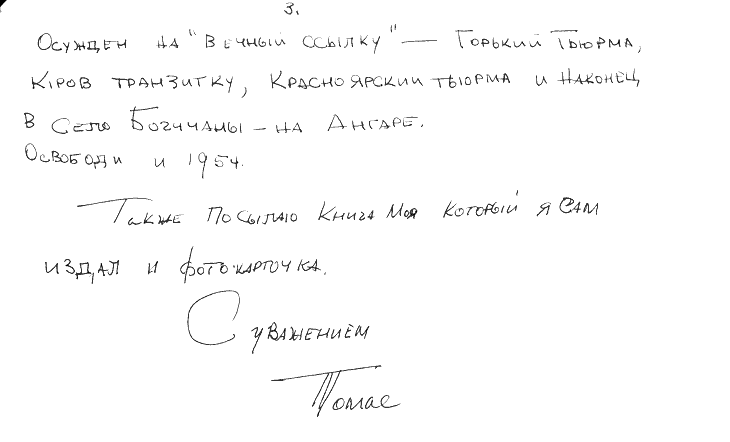 3.
Осужден на "Вечный ссылку" — Горький Тьюрма,
Кіров транзитку, Красноярский тьюрма и наконец
в село Богучаны – на Ангаре.
Освободи и 1954.
Также посылаю книга моя который я сам
издал и фото-карточка.
С уважением
Томас